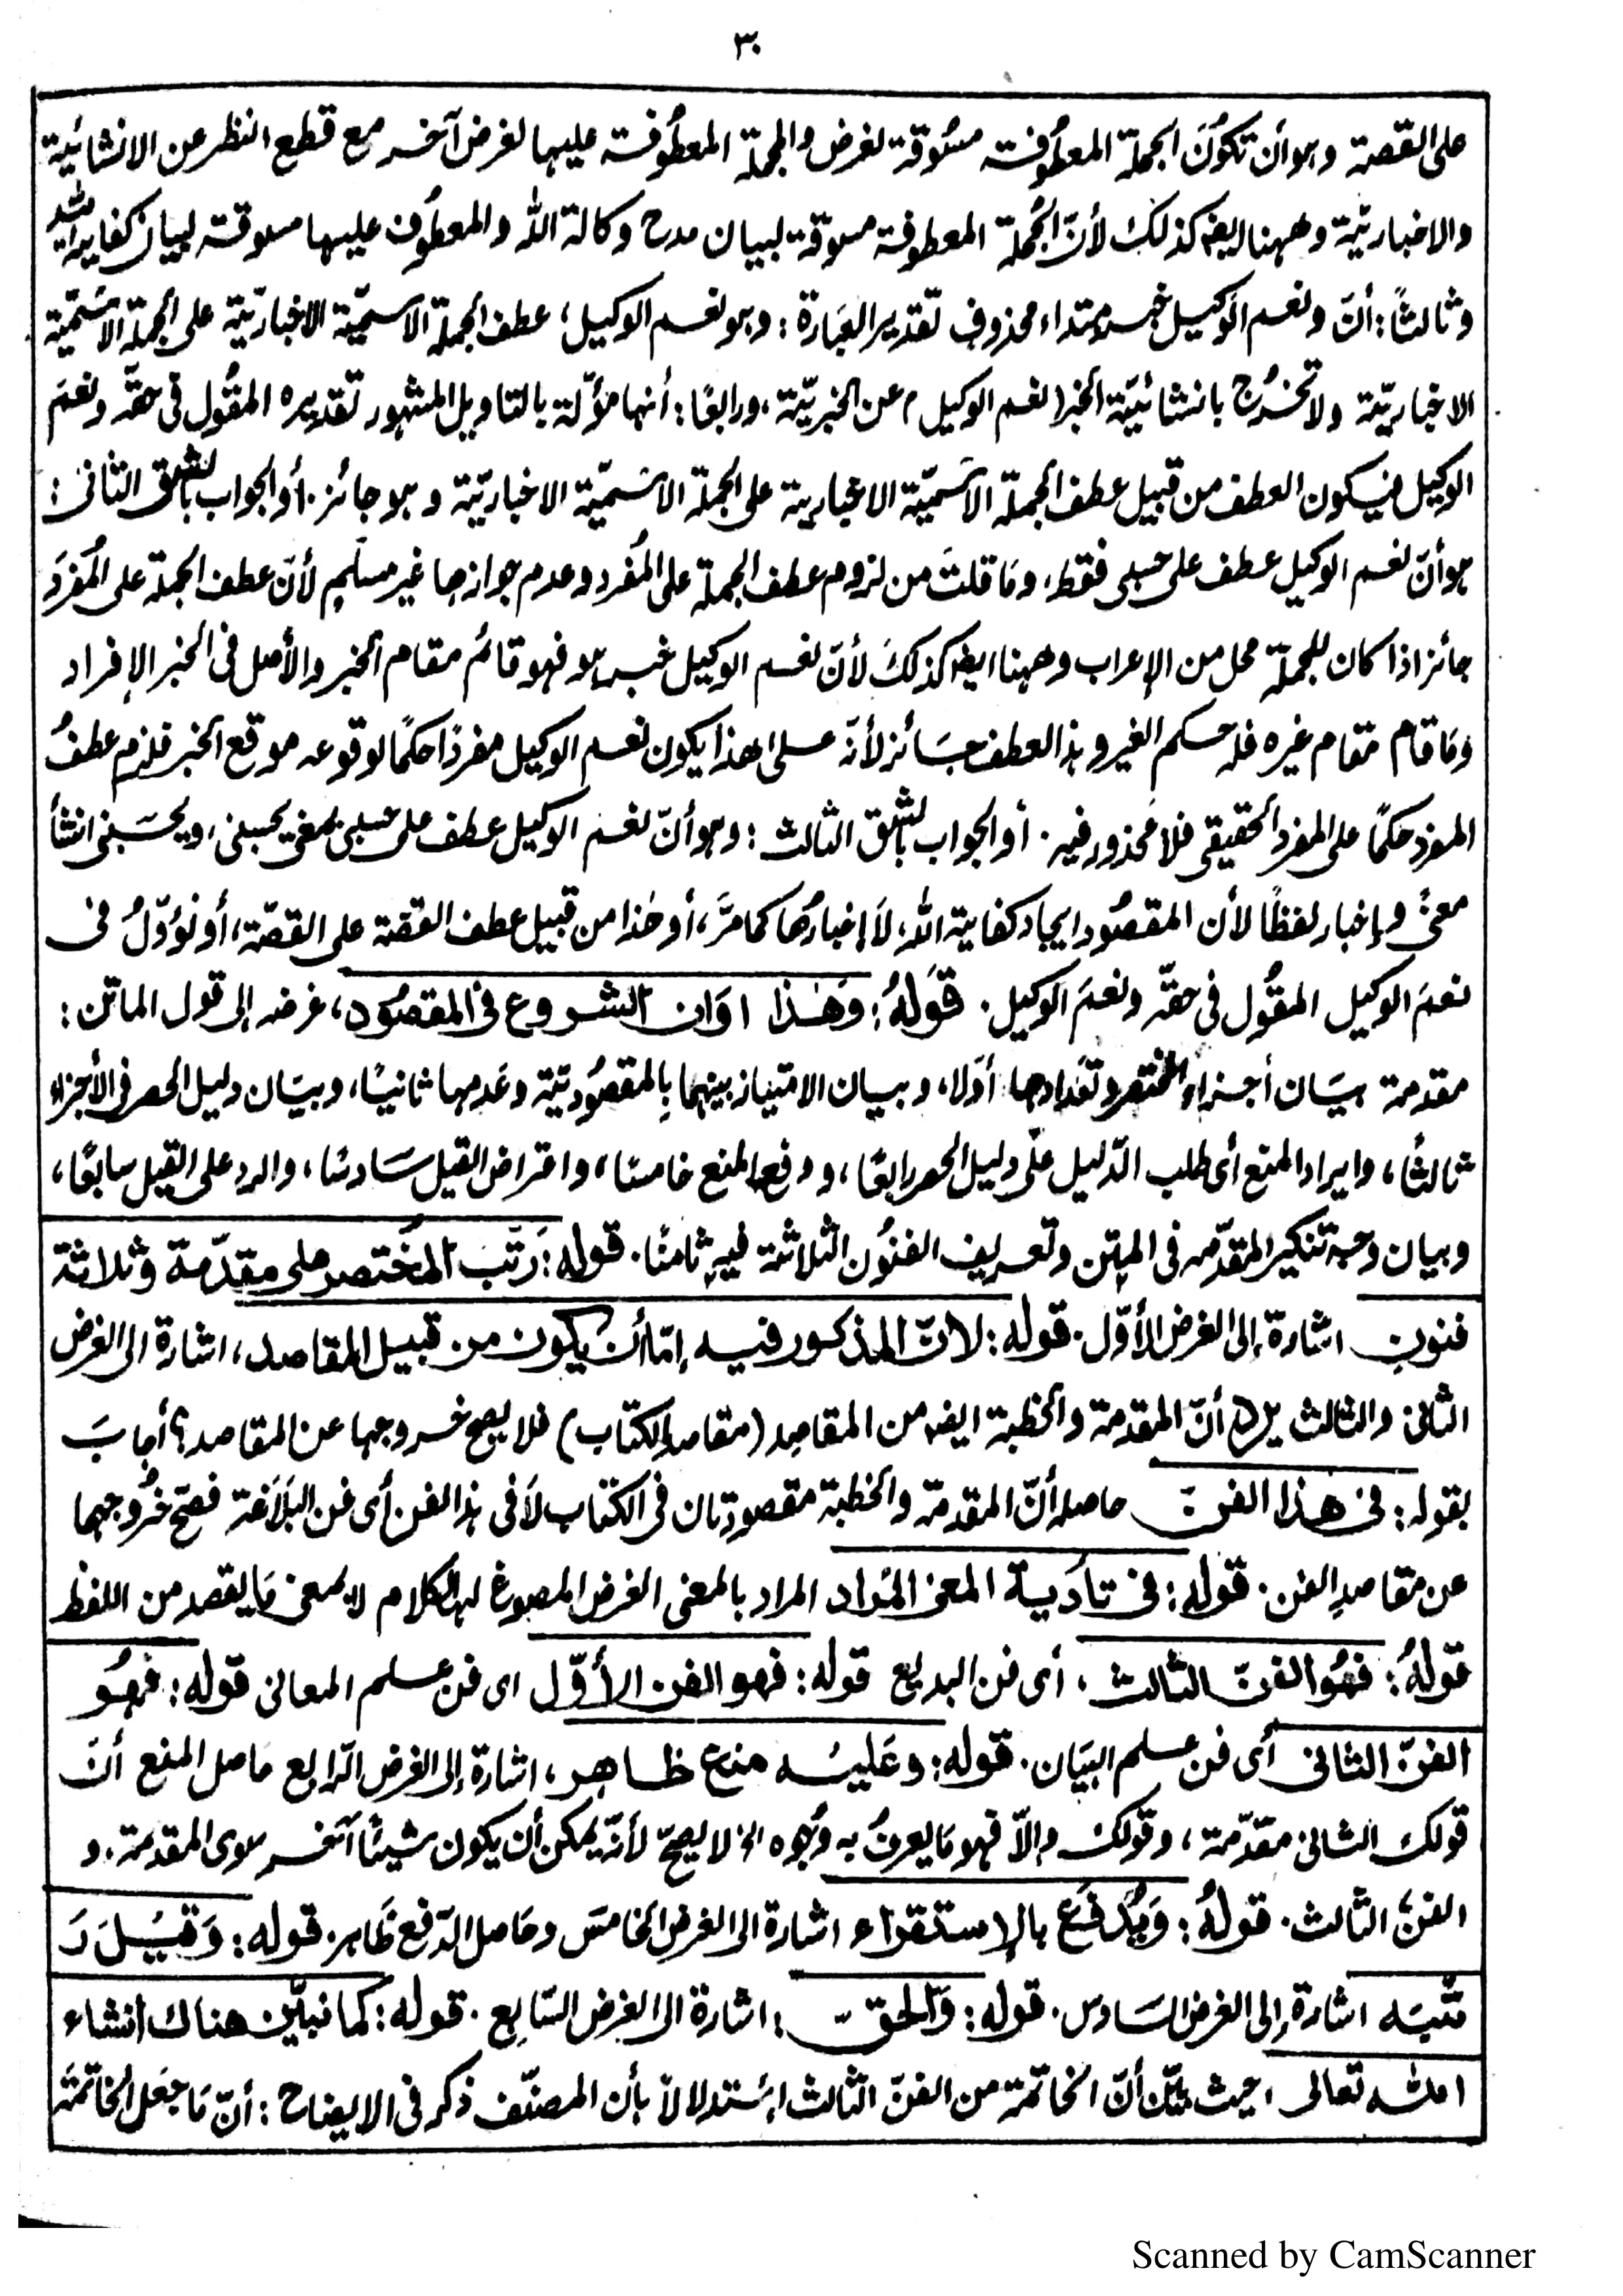 ٣٠
على القصة وهو أن تكونَ الجملة المعطُوفة مسُوقة لغرض والجملة المعطُوفة عليها لغرض آخر مع قطع النظر عن الانشائيّة
والاخباريّة وههنا ايضًا كذلك لأنّ الجُملة المعطوفة مسوقة لبيان مدح وكالة الله والمعطُوف عليها مسوقة لبيان كفاية الله
وثالثًا: أنّ ونعم الوكيل خبر مبتداء محذوف تقدير العبَارة: وهو نعم الوكيل، عطف الجملة الاسميّة الاخباريّة على الجملة الاسميّة
الاخباريّة ولا تخرُج بانشائيّة الخبر (نعم الوكيل) عن الخبريّة، ورابعًا: أنها مؤلّة بالتاويل المشهور تقديره المقُول فى حقّه ونعمَ
الوكيل فيكون العطف من قبيل عطف الجملة الاسميّة الاخبارية على الجملة الاسميّة الاخباريّة وهو جائز. أو الجواب بالشق الثانى:
هو أنّ نعم الوكيل عطف على حسبى فقط، ومَا قلتَ من لزوم عطف الجملة على المُفرد وعدم جوازها غير مسلّم لأنّ عطف الجملة على المُفرَد
جائز اذا كان للجملة محل من الإعراب وههنا ايضًا كذلكَ لأنّ نعم الوكيل خبر هو فهو قائم مقام الخبر والأصل فى الخبر الإفراد
ومَا قام مقام غيره فله حكم الغير وهذا العطف جَائز لأنّه على هذا يكون نعم الوكيل مفردًا حكمًا لوقوعه موقع الخبر فلزم عطفُ
المفرد حكمًا على المفرد الحقيقى فلا محذور فيه. أو الجواب بالشق الثالث: وهو أنّ نعم الوكيل عطف على حسبى بمعنى يحسبنى، ويحسَبنى انشأ
معنًى وإخبار لفظًا لأن المقصُود ايجاد كفاية الله، لَا إخبارُها كما مرَّ، أو هٰذا من قبيل عطف القصّة على القصّة، أو نُؤوّلُ فى
نعمَ الوكيل المقُول فى حقّه ونعمَ الوكيل. قَولهُ: وَهٰذا اوَان الشروع فى المقصُود، غرضه إلى قول الماتن:
مقدمة بيَان أجزاء المختصر وتعدادها أوّلا، وبيان الامتياز بينهما بالمقصُوديّة وعَدمها ثانيًا، وبيَان دليل الحصر فى الأجزاء
ثالثًا، وايراد المنع أى طلب الدّليل على دليل الحصر رابعًا، ودفع المنع خامسًا، واعتراض القيل سَادسًا، والرد على القيل سابعًا،
وبيان وجه تنكير المقدّمه فى المتن وتعريف الفنُون الثلاثة فيهِ ثامنًا. قوله: رَتّبَ المُختصر على مقدّمة وثلاثة
فنونِ اشارة إلى الغرض الأوّل. قوله: لانّ المذكور فيه إمّا أن يكون من قبيل المقاصد، اشارة الى الغرض
الثانى والثالث يرد أنّ المقدمة والخطبة ايضًا من المقاصِد (مقاصد الكتاب) فلا يصح خروجها عن المقاصد؟ أجابَ
بقوله: فى هذا الفنّ حاصله أنّ المقدمة والخطبة مقصودتان فى الكتاب لَا فى هذا الفن أى فن البَلَاغة فصحّ خُروجهما
عن مقاصدِ الفن. قوله: فى تأدية المعنى المُراد المراد بالمعنى الغرض المصوغ لها الكلام لا بمعنى مَا يقصد من اللفظ
قولهُ: فهُو الفنّ الثالث، أى فن البديع قوله: فهو الفن الأوّل اى فن علم المعانى قوله: فهُو
الفنّ الثانى أى فن علم البيَان. قوله: وعَليه منع ظاهر، اشارة إلى الغرض الرّابع حاصل المنع أنّ
قولك الثانى مقدّمة، وقولكَ والّا فهو مَا يعرفُ به وُجوه الخ لا يصحّ لأنّه يمكن أن يكون شيئًا آخر سوى المقدمة. و
الفنُ الثالث. قولهُ: وَيُدفَع بالإستقراء اشارة الى الغرض الخامسَ وحَاصل الدّفع ظَاهر. قوله: وَقيُلَ رَ
تّبَه اشارة إلى الغرض السَادس. قوله: وَالحقّ، اشارة الى الغرض السّابع. قوله: كما نبيّن هناك انشاء
اللّٰه تعالى، حيث بيّن أنّ الخاتمة من الفنّ الثالث إستدلالاً بأن المصنّف ذكر فى الايضاح: أنّ مَا جعَل الخاتمة
Scanned by CamScanner